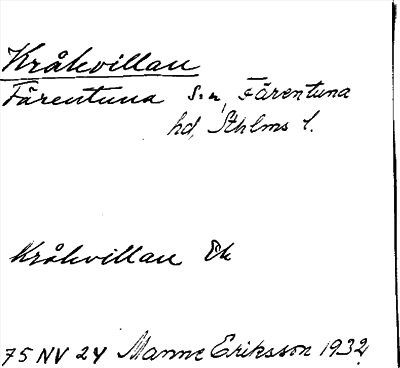 Kråkvillan
Färentuna s:n, Färentuna
hd, Sthlms l.
Kråkvillan Ek
75 NV 24 Manne Eriksson 1932